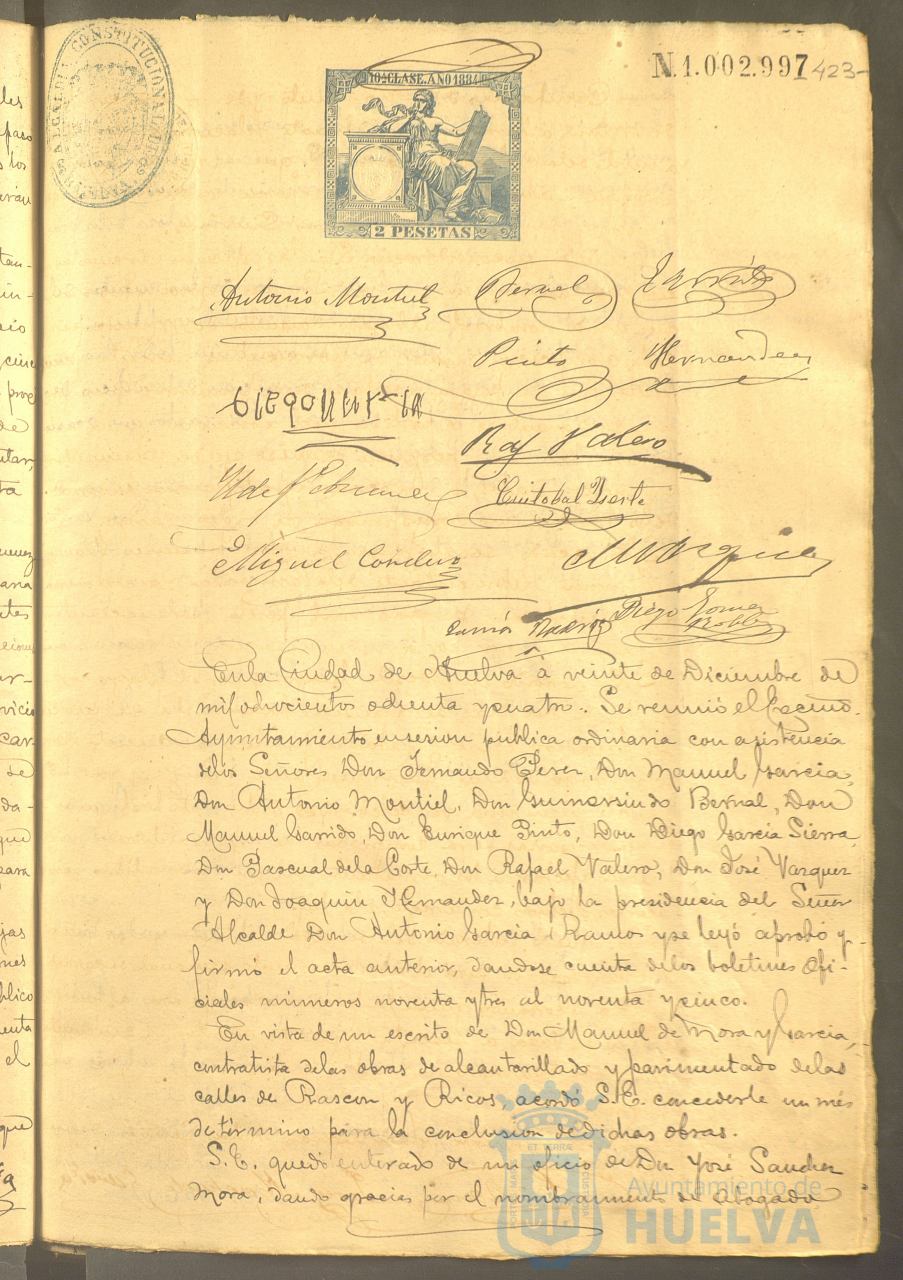 ALCALDIA CONSTITUCIONAL DE HUELVA
10ª CLASE. AÑO 1884
N.1.002.997
423-
2 PESETAS
Antonio Montiel Bernal Garrido
Pinto Hernandez
Raf Valero
Cristobal
Miguel
Diego Gomez
Robles
En la Ciudad de Huelva á veinte de Diciembre de
mil ochocientos ochenta y cuatro. Se reunió el Excmo.
Ayuntamiento en sesion publica ordinaria con asistencia
de los Señores Don Fernando Perez, Don Manuel Garcia,
Don Antonio Montiel, Don Gumersindo Bernal, Don
Manuel Garrido, Don Enrique Pinto, Don Diego Garcia Sierra,
Don Pascual de la Corte, Don Rafael Valero, Don José Vazquez
y Don Joaquin Hernandez, bajo la presidencia del Señor
Alcalde Don Antonio Garcia Ramos y se leyó aprobó y
firmó el acta anterior, dandose cuenta de los boletines Ofi-
ciales números noventa y tres al noventa y cinco.
En vista de un escrito de Don Manuel de Mora y Garcia,
contratista de las obras de alcantarillado y pavimentado de las
calles de Rascon y Ricos, acordó S.E. concederle un més
de término para la conclusion de dichas obras.
S.E. quedó enterado de un oficio de Don José Sanchez
Mora, dando gracias por el nombramiento de Abogado
Ayuntamiento de
HUELVA